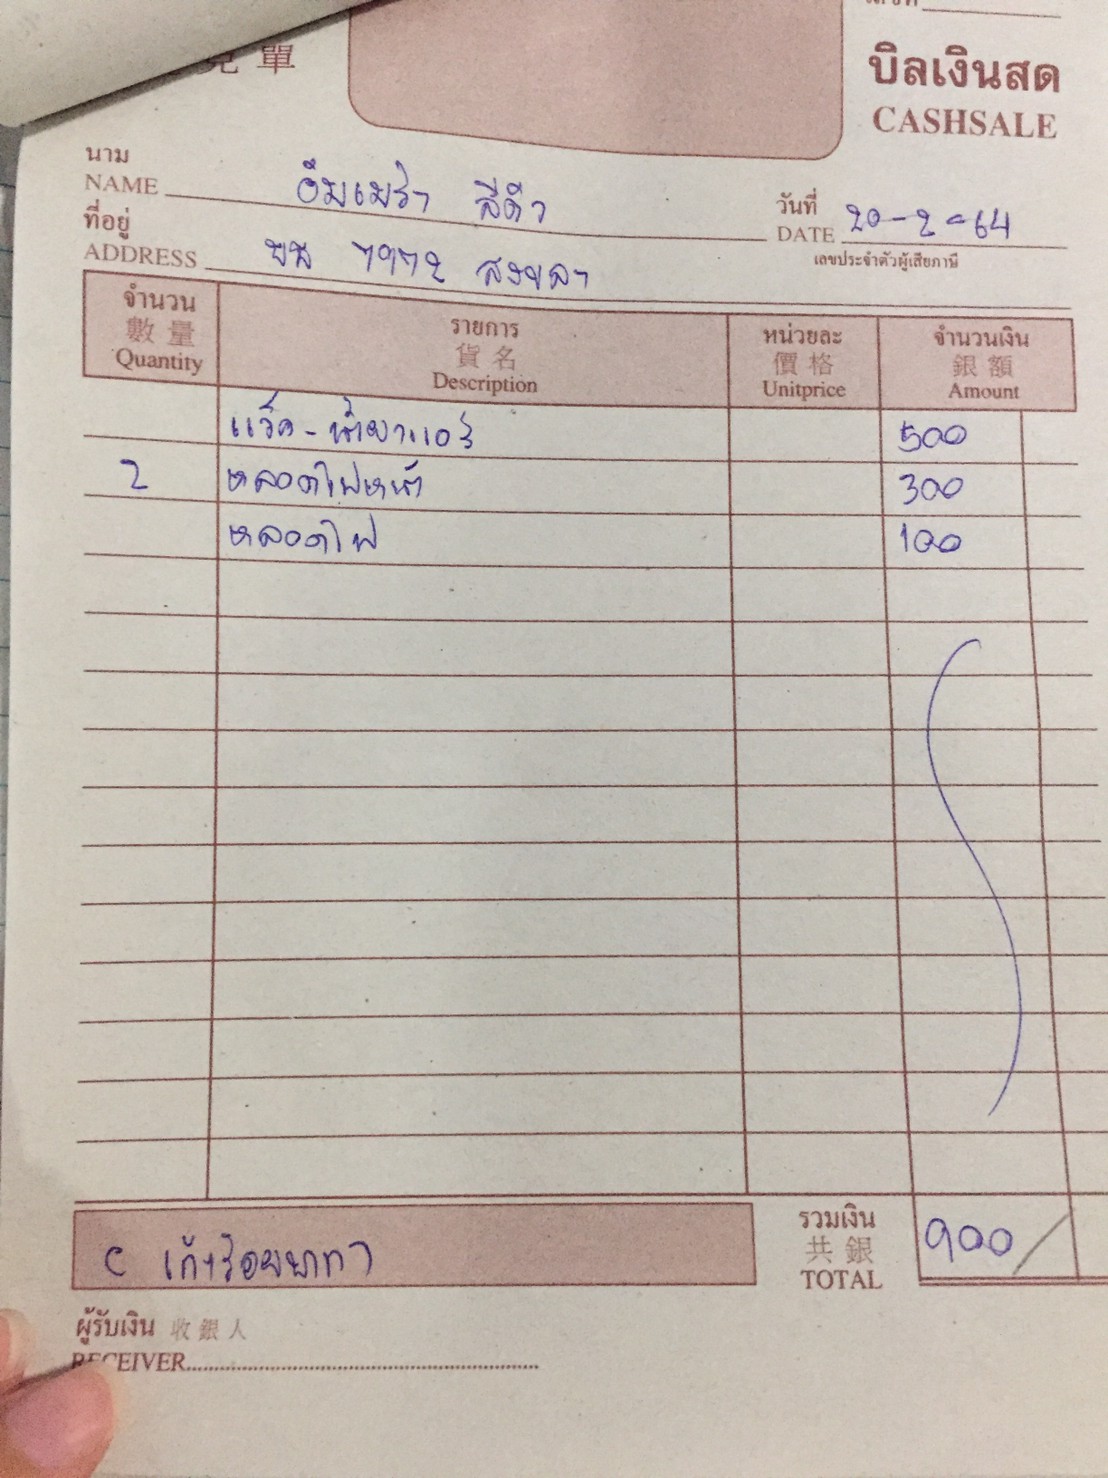 單
บิลเงินสด
CASHSALE
นาม
NAME อิมเมจิ้า สีดำ
ที่อยู่
ADDRESS ขน 7972 สงขลา
วันที่
DATE 20-2-64
เลขประจำตัวผู้เสียภาษี
จำนวน รายการ หน่วยละ จำนวนเงิน
數量 貨名 價格 銀額
Quantity Description Unitprice Amount
แว็ค-น้ำยาแอร์ 500
2 หลอดไฟหน้า 300
หลอดไฟ 100
รวมเงิน
共銀
TOTAL 900/
( เก้าร้อยบาท)
ผู้รับเงิน 收銀人
RECEIVER